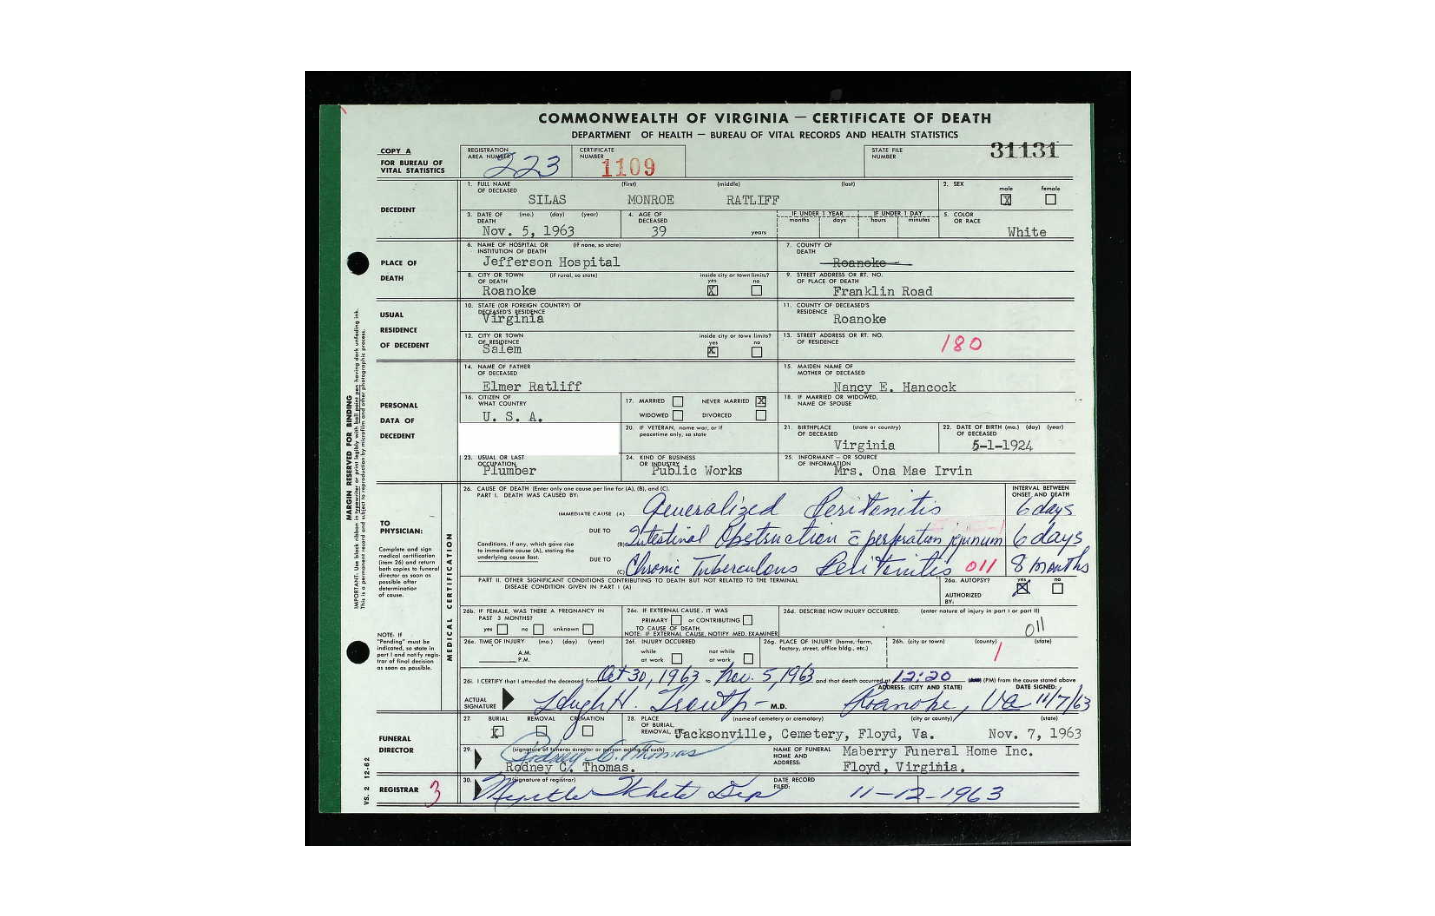 COMMONWEALTH OF VIRGINIA — CERTIFICATE OF DEATH
DEPARTMENT OF HEALTH — BUREAU OF VITAL RECORDS AND HEALTH STATISTICS
COPY A
FOR BUREAU OF VITAL STATISTICS
REGISTRATION AREA NUMBER 223
CERTIFICATE NUMBER 1109
STATE FILE NUMBER 31131
DECEDENT
1. FULL NAME OF DECEASED (first) (middle) (last)
SILAS MONROE RATLIFF
2. SEX male X female
3. DATE OF DEATH (mo.) (day) (year) Nov. 5, 1963
4. AGE OF DECEASED 39 years
IF UNDER 1 YEAR months days
IF UNDER 1 DAY hours minutes
5. COLOR OR RACE White
PLACE OF DEATH
6. NAME OF HOSPITAL OR INSTITUTION OF DEATH (if none, so state) Jefferson Hospital
7. COUNTY OF DEATH Roanoke
8. CITY OR TOWN OF DEATH (if rural, so state) Roanoke
inside city or town limits? yes X no
9. STREET ADDRESS OR RT. NO. OF PLACE OF DEATH Franklin Road
USUAL RESIDENCE OF DECEDENT
10. STATE (OR FOREIGN COUNTRY) OF DECEASED'S RESIDENCE Virginia
11. COUNTY OF DECEASED'S RESIDENCE Roanoke
12. CITY OR TOWN OF RESIDENCE Salem
inside city or town limits? yes X no
13. STREET ADDRESS OR RT. NO. OF RESIDENCE 180
PERSONAL DATA OF DECEDENT
14. NAME OF FATHER OF DECEASED Elmer Ratliff
15. MAIDEN NAME OF MOTHER OF DECEASED Nancy E. Hancock
16. CITIZEN OF WHAT COUNTRY U. S. A.
17. MARRIED NEVER MARRIED X
WIDOWED DIVORCED
18. IF MARRIED OR WIDOWED, NAME OF SPOUSE
20. IF VETERAN, name war, or if peacetime only, so state
21. BIRTHPLACE OF DECEASED (state or country) Virginia
22. DATE OF BIRTH (mo.) (day) (year) OF DECEASED 5-1-1924
23. USUAL OR LAST OCCUPATION Plumber
24. KIND OF BUSINESS OR INDUSTRY Public Works
25. INFORMANT – OR SOURCE OF INFORMATION Mrs. Ona Mae Irvin
MARGIN RESERVED FOR BINDING
TO PHYSICIAN:
Complete and sign medical certification (item 26) and return both copies to funeral director as soon as possible after determination of cause.
NOTE: If "Pending" must be indicated, so state in part I and notify registrar of final decision as soon as possible.
MEDICAL CERTIFICATION
26. CAUSE OF DEATH (Enter only one cause per line for (A), (B), and (C).
PART I. DEATH WAS CAUSED BY:
INTERVAL BETWEEN ONSET AND DEATH
IMMEDIATE CAUSE (A) Generalized Peritonitis 6 days
Conditions, if any, which gave rise to immediate cause (A), stating the underlying cause last.
DUE TO (B) Intestinal Obstruction c̄ perforation jejunum 6 days
DUE TO (C) Chronic Tuberculous Peritonitis 011 8 months
PART II. OTHER SIGNIFICANT CONDITIONS CONTRIBUTING TO DEATH BUT NOT RELATED TO THE TERMINAL DISEASE CONDITION GIVEN IN PART I (A)
26a. AUTOPSY? yes X no
AUTHORIZED BY:
26b. IF FEMALE, WAS THERE A PREGNANCY IN PAST 3 MONTHS?
yes no unknown
26c. IF EXTERNAL CAUSE, IT WAS
PRIMARY or CONTRIBUTING
TO CAUSE OF DEATH.
NOTE: IF EXTERNAL CAUSE, NOTIFY MED. EXAMINER
26d. DESCRIBE HOW INJURY OCCURRED. (enter nature of injury in part I or part II)
011
26e. TIME OF INJURY (mo.) (day) (year)
A.M.
P.M.
26f. INJURY OCCURRED
while at work not while at work
26g. PLACE OF INJURY (home, farm, factory, street, office bldg., etc.)
26h. (city or town) (county) (state)
26i. I CERTIFY that I attended the deceased from Oct 30, 1963 - Nov. 5, 1963 and that death occurred at 12:20 (PM) from the cause stated above
ACTUAL SIGNATURE Hugh H. Trout Jr — M.D.
ADDRESS: (CITY AND STATE) Roanoke, Va
DATE SIGNED: 11/7/63
FUNERAL DIRECTOR
27. BURIAL X REMOVAL CREMATION
28. PLACE OF BURIAL, REMOVAL, ETC. (name of cemetery or crematory) (city or county) (state)
Jacksonville, Cemetery, Floyd, Va. Nov. 7, 1963
29. (signature of funeral director or person acting as such)
Rodney C. Thomas
Rodney C. Thomas.
NAME OF FUNERAL HOME AND ADDRESS: Maberry Funeral Home Inc.
Floyd, Virginia.
REGISTRAR 3
30. (signature of registrar)
Myrtle White Dep
DATE RECORD FILED: 11-12-1963
VS. 2 12-62